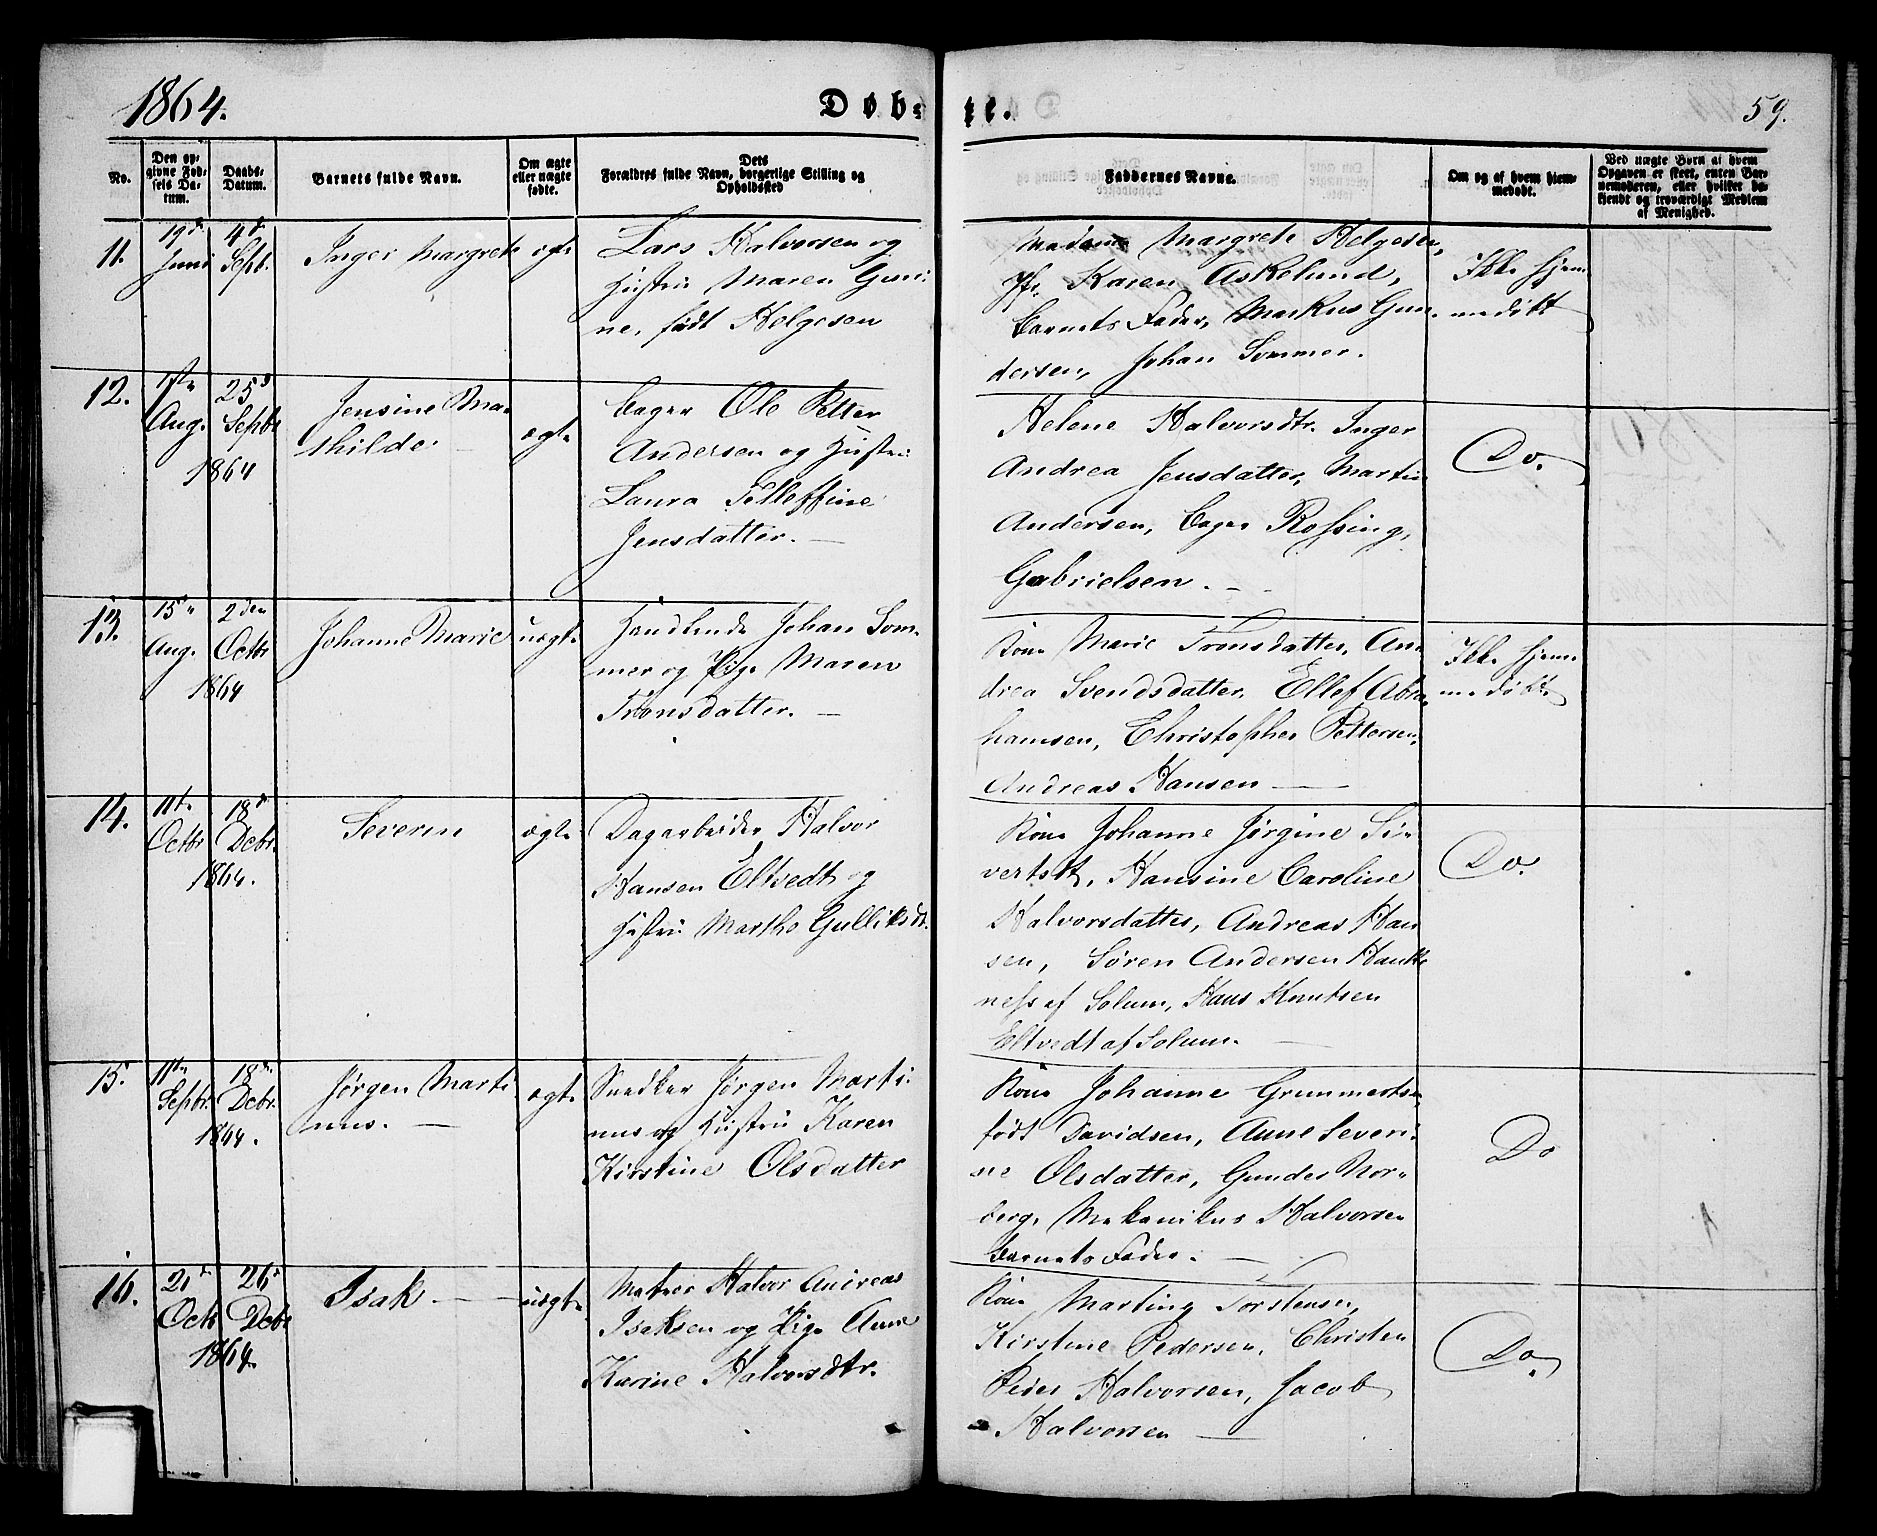 1864.
Døb-
te.
59.
No.
Den opgivne Fødsels Datum.
Daabs-Datum.
Barnets fulde Navn.
Om ægte eller uægte fødte.
Dets Forældres fulde Navn, borgerlige Stilling og Opholdsted
Faddernes Navne.
Om og af hvem hjemmedøbt.
Ved uægte Børn af hvem Opgaven er skeet, enten Barnemoderen, eller hvilket bekjendt og troværdigt Medlem af Menighed.
11.
19de Juni
4de Septb.
Inger Margrete
ægte
Lars Halvorsen og
Hustru Maren Gun-
ne, født Helgesen
Madame Margrete Helgesen,
Jfr. Karen Askelund,
Barnets Fader, Markus Gun-
dersen, Johan Sommer.
Ikke hjem-
medøbt
12.
1ste Aug.
25d Septbr
1864
Jensine Ma-
thilde
ægte
Bager Ole Petter
Andersen og Hustru
Laura Telleffine
Jensdatter. —
Helene Halvorsdtr. Inger
Andrea Jensdatter, Martin
Andersen, Bager Rossing,
Gabrielsen. —
Do.
13.
15de Aug.
2den Octbr
1864
Johanne Marie
uægte
Handlende Johan Som-
mer og Pige Maren
Tronsdatter. —
Kone Marie Tronsdatter, An-
drea Svendsdatter, Ellef Abra-
hamsen, Christopher Pettersen,
Andreas Hansen —
Ikke hjem-
medøbt
14.
11te Octbr
18de Decbr.
1864.
Severin
ægte
Dagarbeider Halvor
Hansen Eltvedt og
Hustru Marthe Gulliksdt.
Kone Johanne Jørgine Si-
vertsdt, Hansine Caroline
Halvorsdatter, Andreas Han-
sen, Søren Andersen Hauk-
ness af Solum, Hans Knutsen
Eltvedt af Solum. —
Do.
15.
11te Septbr.
18de Decbr.
1864.
Jørgen Marti-
nus. —
ægte
Snedker Jørgen Marti-
nus og Hustru Karen
Kirstine Olsdatter
Kone Johanne Grummestsen
født Davidsen, Anne Severi-
ne Olsdatter, Gunder Nor-
berg, Mekanikus Halvorsen
Barnets Fader. —
Do
16.
2de Octb
26de Decbr
1864.
Isak —
uægte
Matros Halvor Andreas
Isaksen og Pige Anne
Karine Halvorsdtr.
Kone Marting Torstensen,
Kirstine Pedersen, Christen
Peder Halvorsen, Jacob
Halvorsen —
Do.